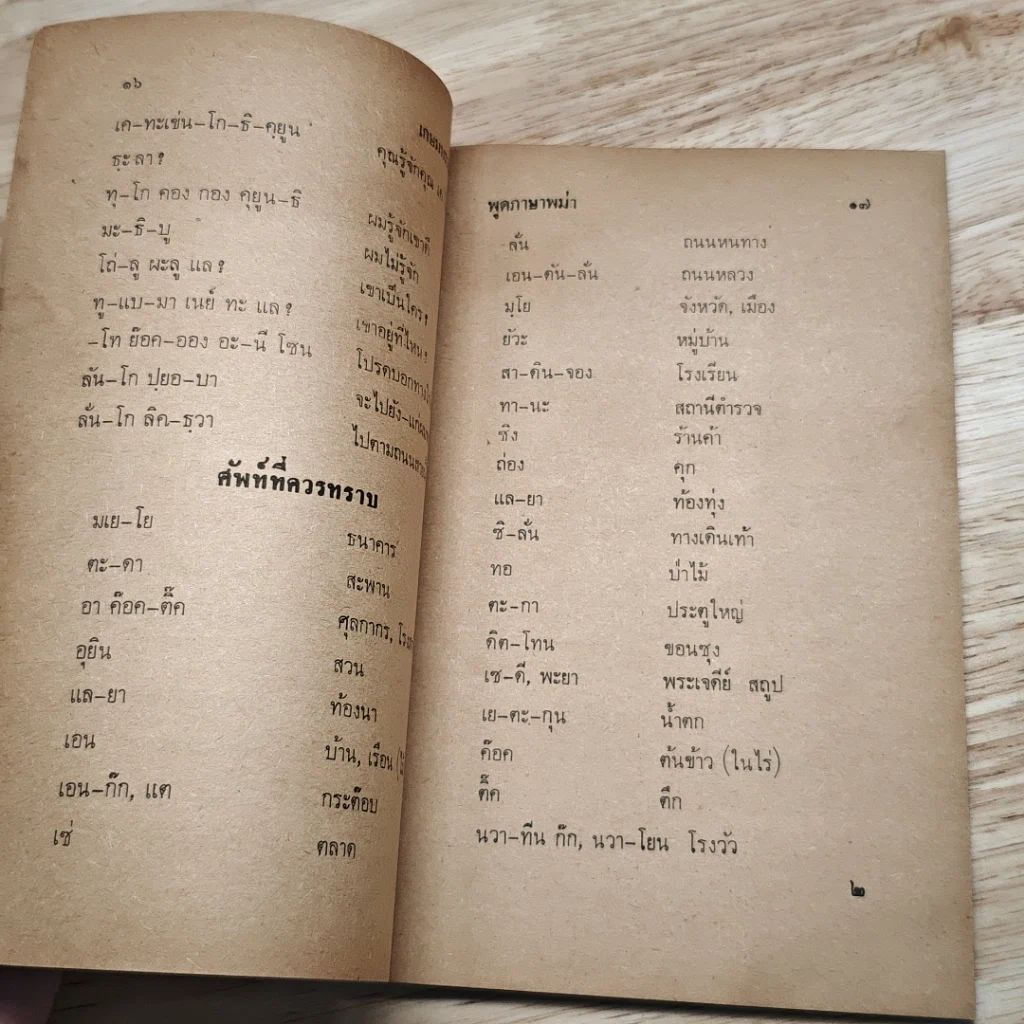 ๑๖
เค-ทะเซ่น-โก-ธิ-คฺยูน คุณรู้จักคุณ
ธฺะลา?
ทุ-โก คอง กอง คฺยูน-ธิ ผมรู้จักเขาดี
มะ-ธิ-บู ผมไม่รู้จัก
โถ่-ลู ผะลู แล? เขาเป็นใคร?
ทู-แบ-มา เนย์ ทะ แล? เขาอยู่ที่ไหน?
-โท ย๊อค-ออง อะ-นี โซน โปรดบอกทาง
ลัน-โก ปฺยอ-บา จะไปยัง-แก่
ลั่น-โก ลิค-ธฺวา ไปตามถนน
ศัพท์ที่ควรทราบ
มเย-โย ธนาคาร
ตะ-ดา สะพาน
อา ค๊อค-ติ๊ค ศุลกากร,
อุยิน สวน
แล-ยา ท้องนา
เอน บ้าน, เรือน
เอน-ก๊ก, แต กระต๊อบ
เซ่ ตลาด
พูดภาษาพม่า ๑๗
ลั่น ถนนหนทาง
เอน-ดัน-ลั่น ถนนหลวง
มฺโย จังหวัด, เมือง
ยัวะ หมู่บ้าน
สา-ดิน-จอง โรงเรียน
ทา-นะ สถานีตำรวจ
ซิง ร้านค้า
ถ่อง คุก
แล-ยา ท้องทุ่ง
ซิ-ลั่น ทางเดินเท้า
ทอ ป่าไม้
ตะ-กา ประตูใหญ่
ดิต-โทน ขอนซุง
เซ-ดี, พะยา พระเจดีย์ สถูป
เย-ตะ-กุน น้ำตก
ค๊อค ต้นข้าว (ในไร่)
ติ๊ค ตึก
นวา-ทีน ก๊ก, นวา-โยน โรงวัว
๒